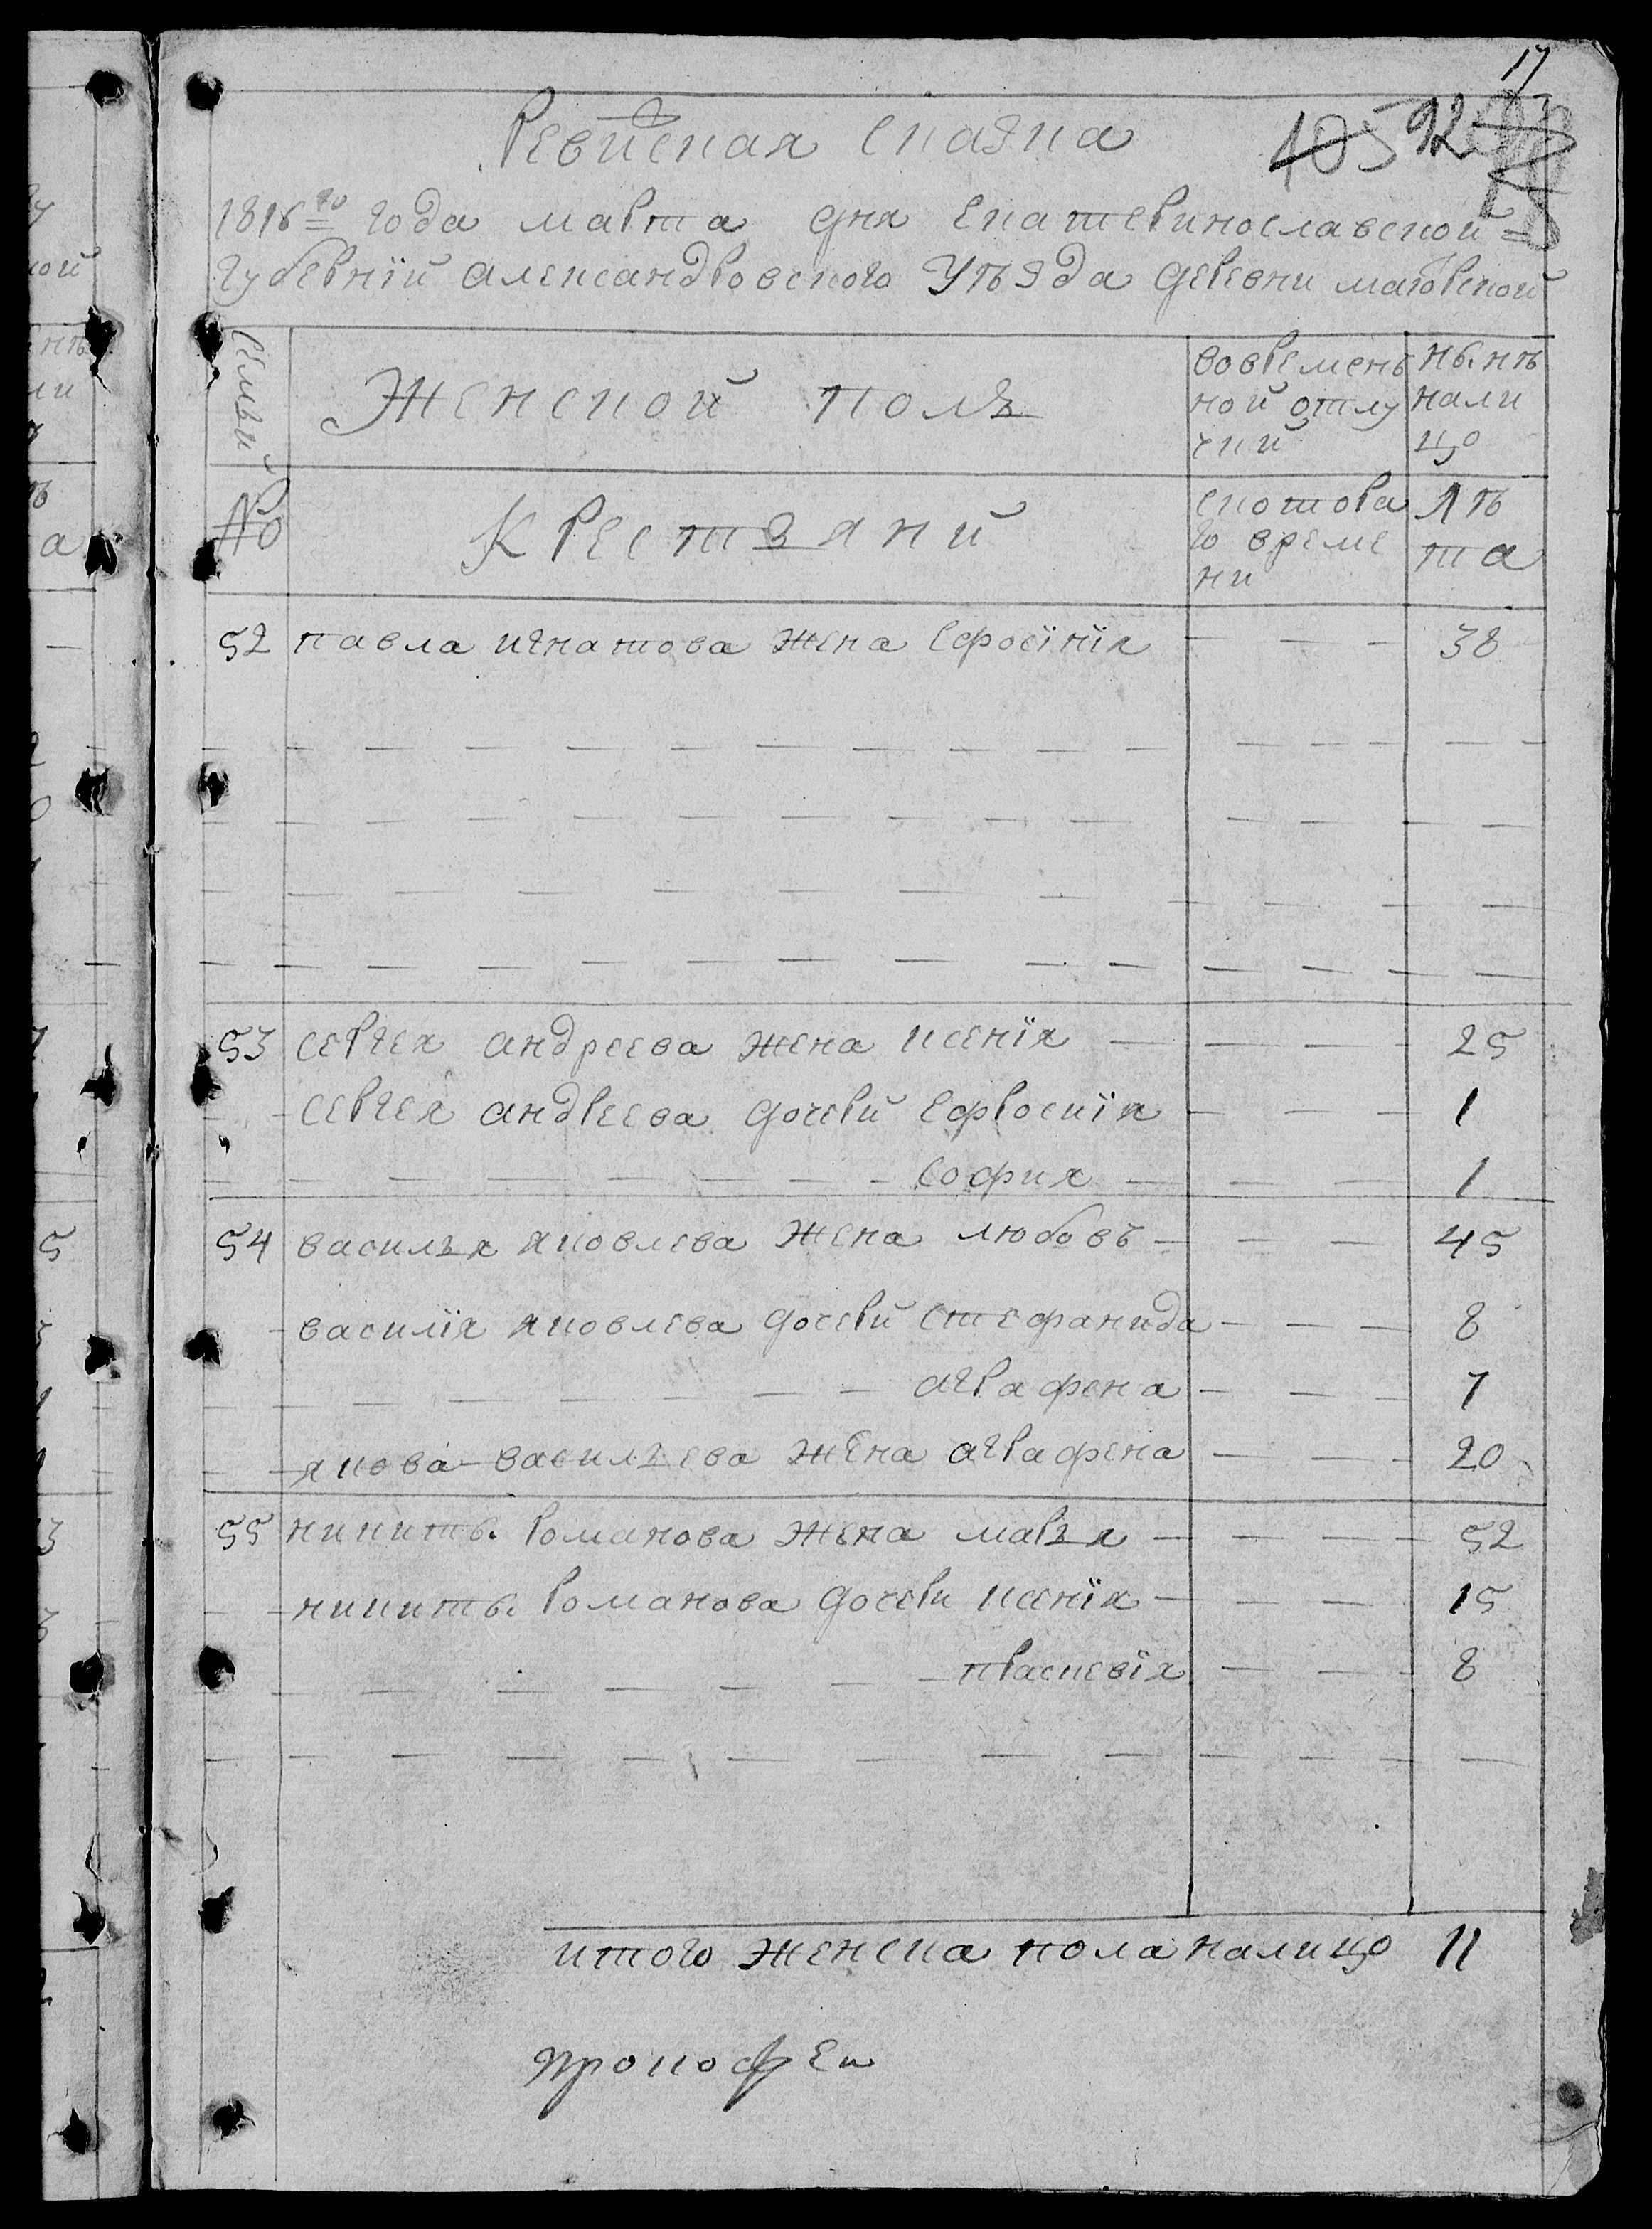 17
105 92
Ревиская Сказка
1816го года марта дня Екатеринославской
губернїи александровского Уѣзда деревни маюрской
Семьи
Женской полъ
вовремень
ной отлу
чки
нынѣ
нали
цо
№
Крестьяни
скотора
го време
ни
лѣ
та
52 павла игнатова жена Ефросїнїя — — — 38
53 сергея андреева жена ксенїя — — — — 25
сергея андреева дочери Ефросинїя — — — 1
София — — — 1
54 василья яковлева жена любовъ — — — 45
василїя яковлева дочери стефанида — — — 8
аграфена — — — 7
якова васильева жена аграфена — — — 20
55 никиты романова жена марья — — — — 52
никиты романова дочери ксенїя — — — 15
прасковїя — — — 8
итого женска пола налицо 11
прокофеи